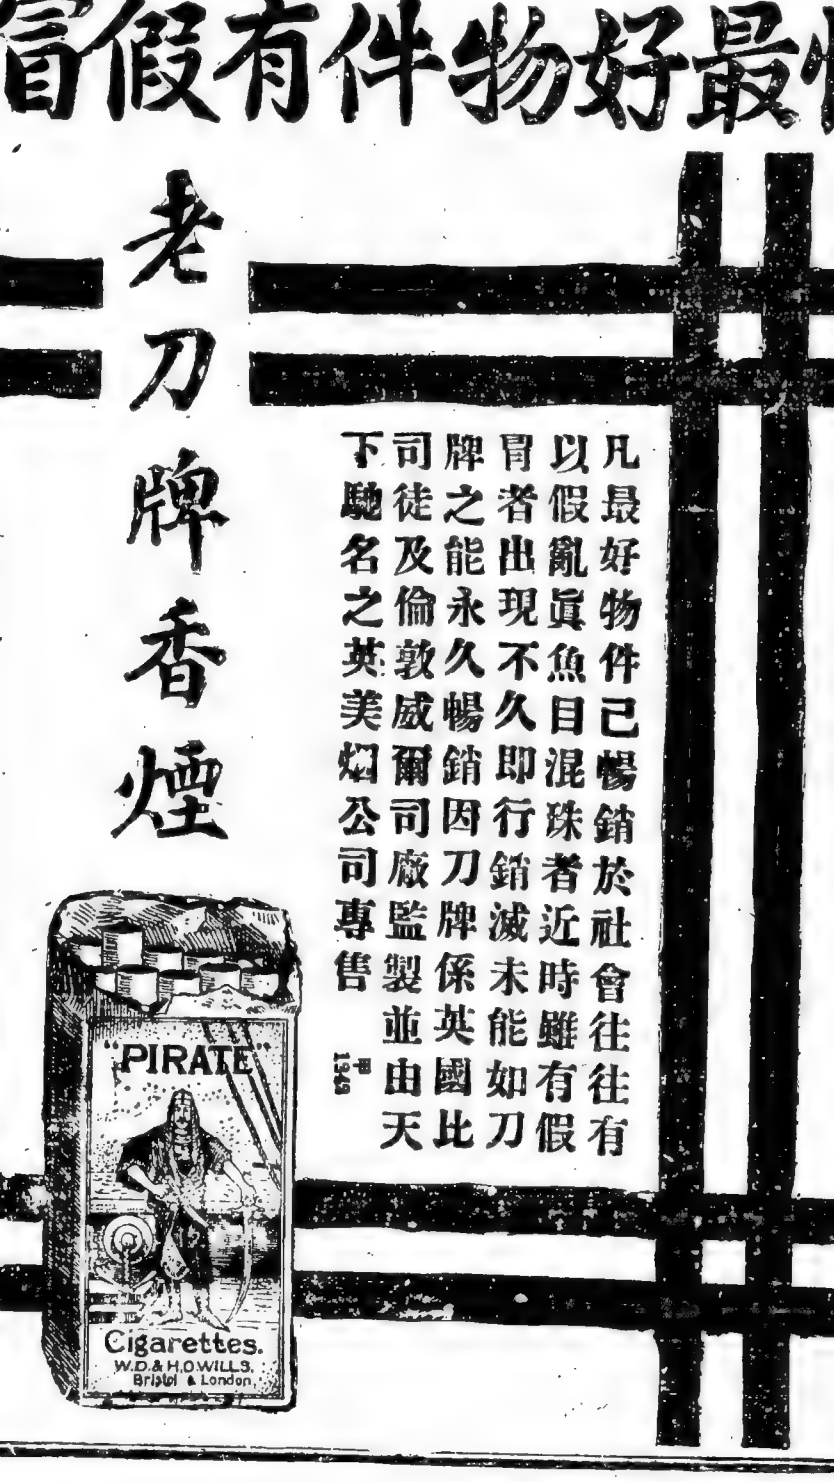 最好物件有假冒
凡最好物件己暢銷於社會往往有
以假亂眞魚目混珠者近時雖有假
冒者出現不久即行銷滅未能如刀
牌之能永久暢銷因刀牌係英國比
司徒及倫敦威爾司廠監製並由天
下馳名之英美烟公司專售
甲
1349
老刀牌香煙
"PIRATE"
Cigarettes.
W.D. & H.O. WILLS.
Bristol & London.